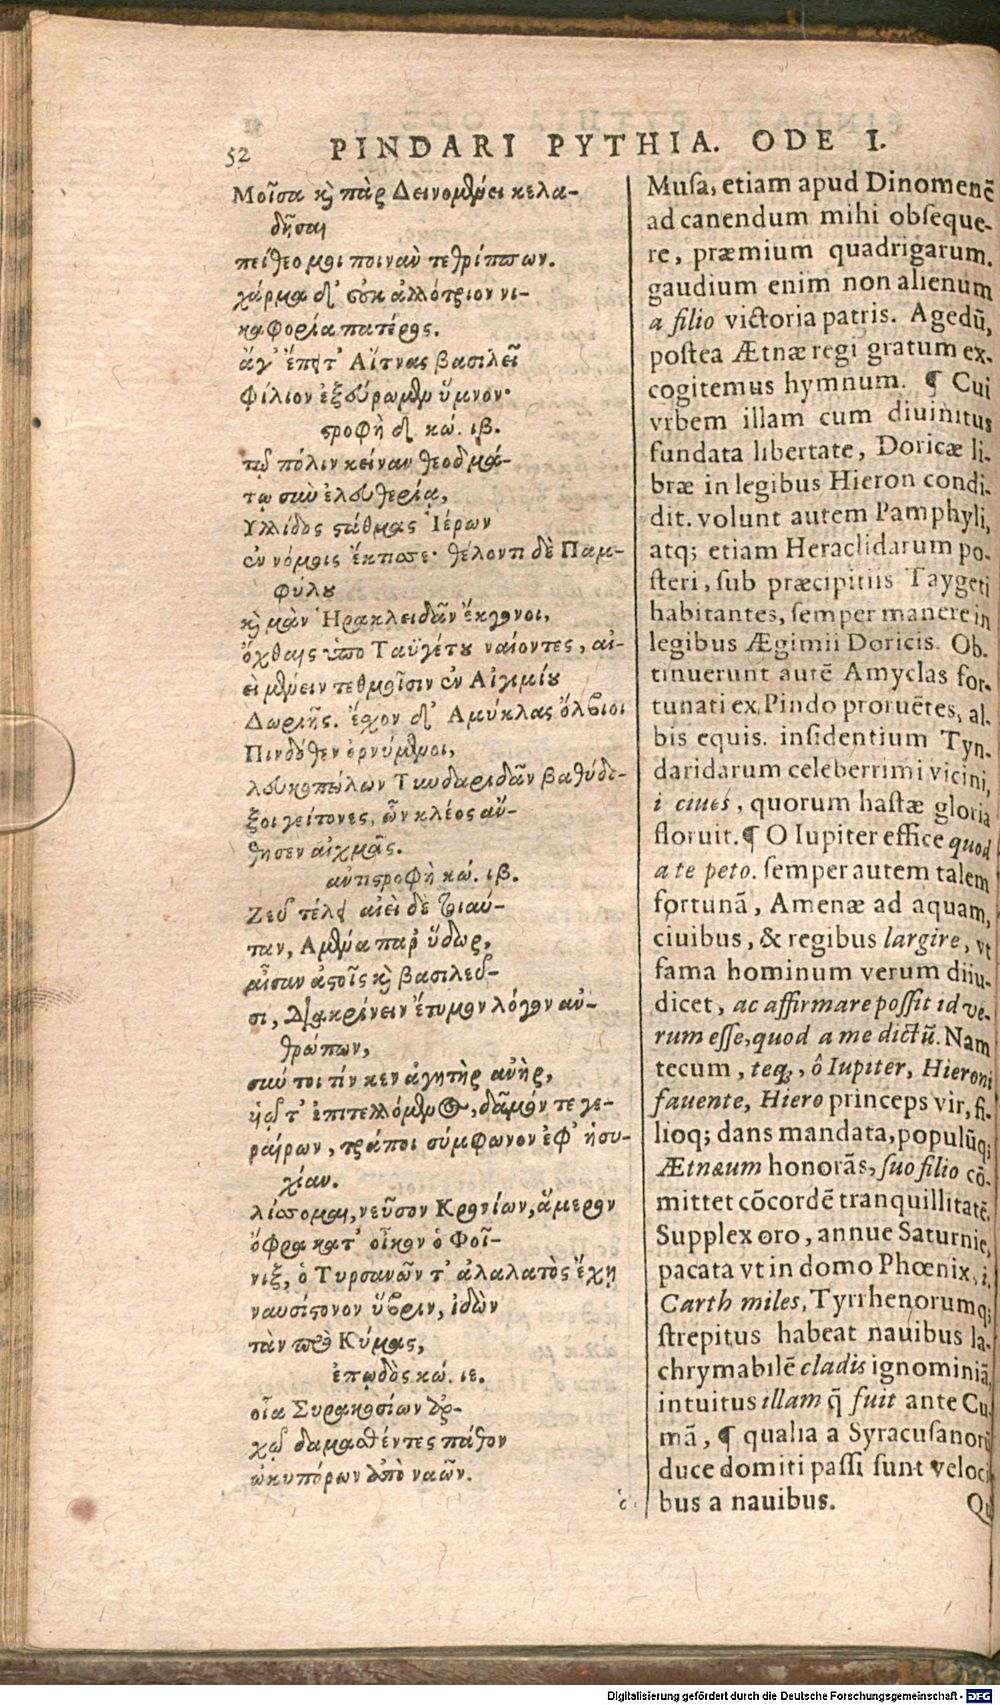 52 PINDARI PYTHIA. ODE I.
Μοῖσα καὶ πὰρ Δεινομένει κελα-
δῆσαι
πείθεο μοι ποινὰν τεθρίππων.
χάρμα δ' οὐκ ἀλλότριον νι-
καφορία πατέρος.
ἄγ' ἔπειτ' Αἴτνας βασιλεῖ
φίλιον ἐξεύρωμεν ὕμνον·
στροφὴ δ. κώ. ιβ.
τῷ πόλιν κείναν θεοδμά-
τῳ σὺν ἐλευθερίᾳ,
Υλλίδος στάθμας Ἱέρων
ἐν νόμοις ἔκτισσε· θέλοντι δὲ Παμ-
φύλου
καὶ μὰν Ἡρακλειδᾶν ἔκγονοι,
ὄχθαις ὑπο Ταϋγέτου ναίοντες, αἰ-
εὶ μένειν τεθμοῖσιν ἐν Αἰγιμίου
Δωριῆς. ἔχον δ' Αμύκλας ὄλβιοι
Πινδόθεν ὀρνύμενοι,
λευκοπώλων Τυνδαριδᾶν βαθύδο-
ξοι γείτονες, ὧν κλέος ἄν-
θησεν αἰχμᾶς.
ἀντιστροφὴ κώ. ιβ.
Ζεῦ τέλει αἰεὶ δὲ τοιαύ-
ταν, Αμένα παρ' ὕδωρ,
αἶσαν ἀστοῖς καὶ βασιλεῦ-
σι, Διακρίνειν ἔτυμον λόγον ἀν-
θρώπων,
σύν τοι τίν κεν ἁγητὴρ ἀνὴρ,
ὑῷ τ' ἐπιτελλόμενος, δᾶμόν τε γε-
ραίρων, τράποι σύμφωνον ἐφ' ἡσυ-
χίαν.
λίσσομαι, νεῦσον Κρονίων, ἅμερον
ὄφρα κατ' οἶκον ὁ Φοῖ-
νιξ, ὁ Τυρσανῶν τ' ἀλαλατὸς ἔχῃ
ναυσίστονον ὕβριν, ἰδὼν
τὰν πρὸ Κύμας,
ἐπῳδὸς κώ. ιε.
οἷα Συρακοσίων ἀρ-
χῷ δαμασθέντες πάθον
ὠκυπόρων ἀπὸ ναῶν.
ὅ
Musa, etiam apud Dinomenẽ
ad canendum mihi obseque-
re, præmium quadrigarum.
gaudium enim non alienum
a filio victoria patris. Agedũ,
postea Ætnæ regi gratum ex-
cogitemus hymnum. ¶ Cui
vrbem illam cum diuinitus
fundata libertate, Doricæ li-
bræ in legibus Hieron condi-
dit. volunt autem Pamphyli,
atq; etiam Heraclidarum po-
steri, sub præcipitiis Taygeti
habitantes, semper manere in
legibus Ægimii Doricis. Ob-
tinuerunt autẽ Amyclas for-
tunati ex Pindo proruẽtes, al-
bis equis. insidentium Tyn-
daridarum celeberrimi vicini,
i ciues, quorum hastæ gloria
floruit. ¶ O Iupiter effice quod
a te peto. semper autem talem
fortunã, Amenæ ad aquam,
ciuibus, & regibus largire, vt
fama hominum verum diiu-
dicet, ac affirmare possit id ve-
rum esse, quod a me dictũ. Nam
tecum, teq;, ô Iupiter, Hieroni
fauente, Hiero princeps vir, fi-
lioq; dans mandata, populũq;
Ætnæum honorãs, suo filio cõ-
mittet cõcordẽ tranquillitatẽ.
Supplex oro, annue Saturnie,
pacata vt in domo Phœnix, i.
Carth miles, Tyrrhenorumq;
strepitus habeat nauibus la-
chrymabilẽ cladis ignominiã,
intuitus illam q̃ fuit ante Cu-
mã, ¶ qualia a Syracusanorũ
duce domiti passi sunt veloci
bus a nauibus.
Qu
Digitalisierung gefördert durch die Deutsche Forschungsgemeinschaft - DFG